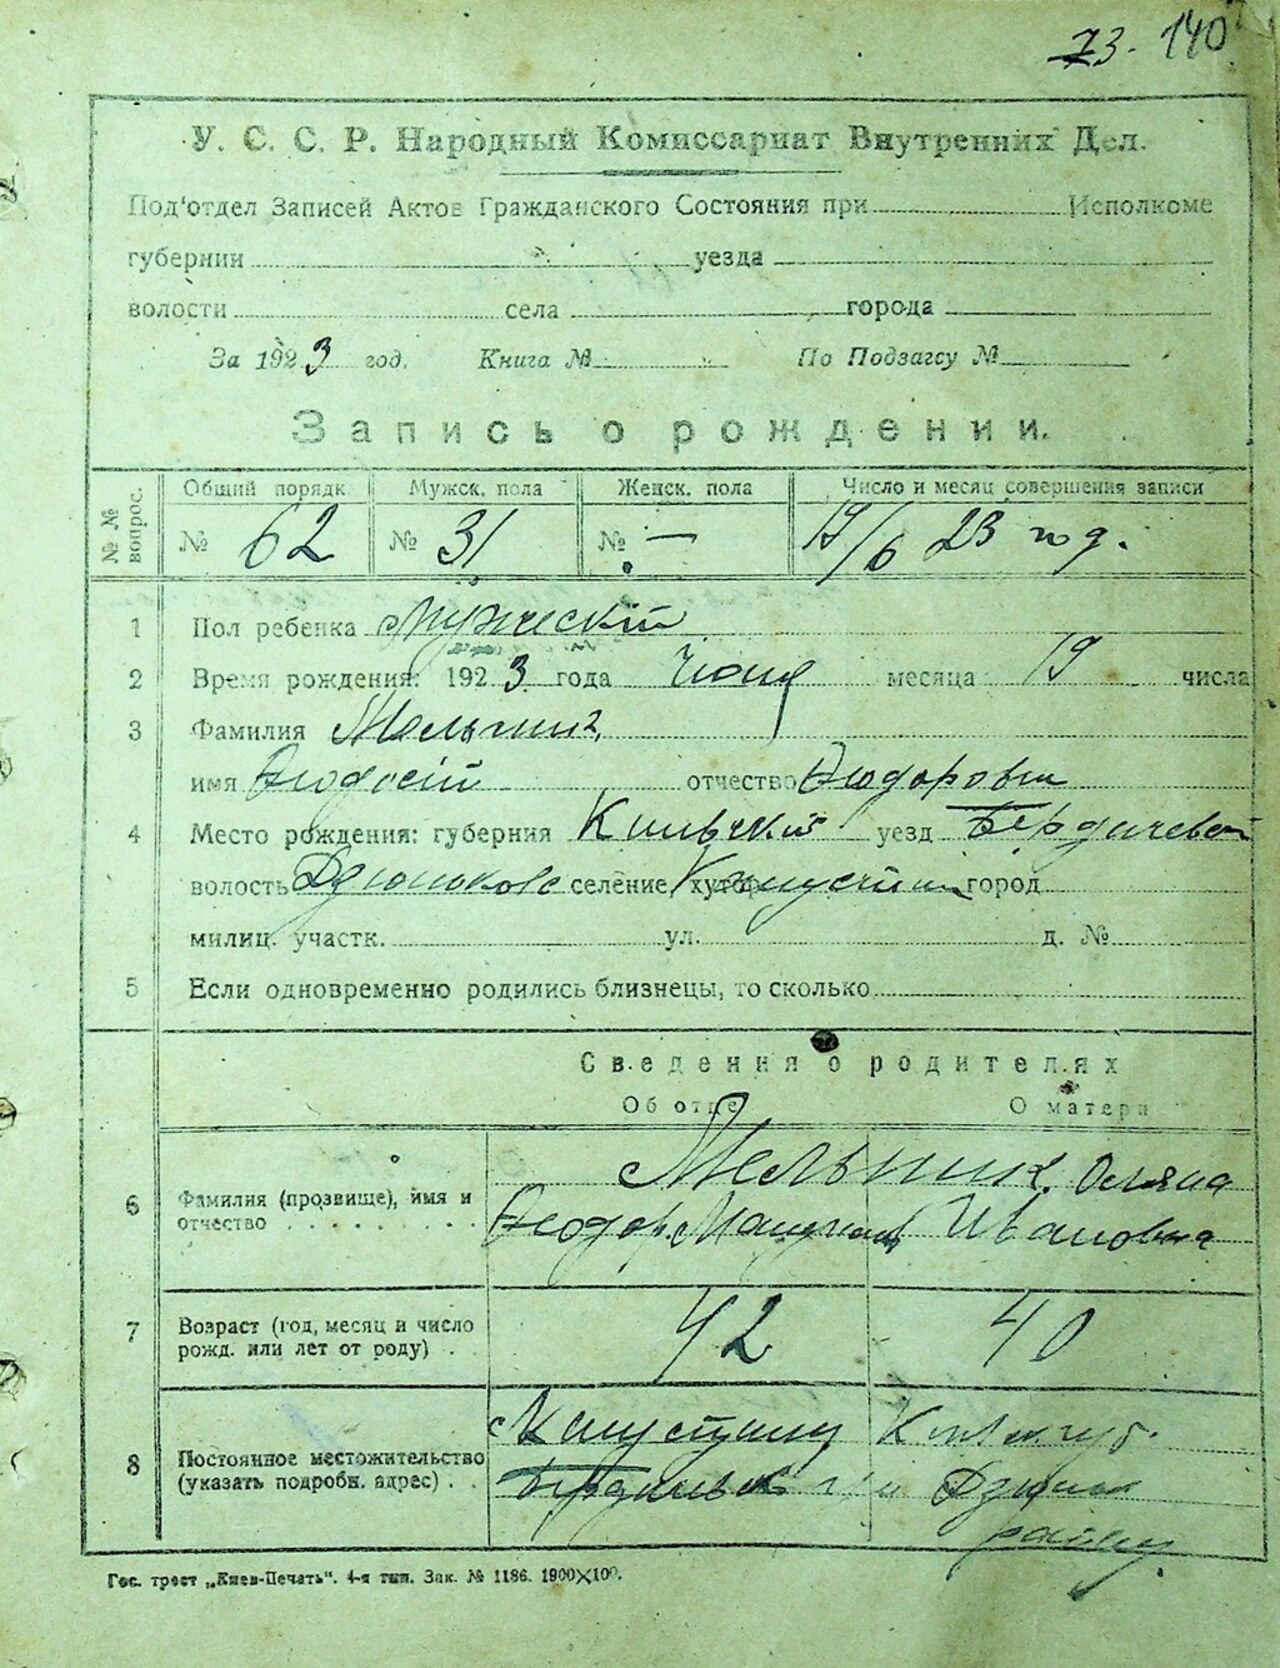 73. 140
У. С. С. Р. Народный Комиссариат Внутренних Дел.
Под'отдел Записей Актов Гражданского Состояния при Исполкоме
губернии уезда
волости села города
За 1923 год. Книга № По Подзагсу №
Запись о рождении.
№ № вопрос. Общий порядк. Мужск. пола Женск. пола Число и месяц совершения записи
№ 62 № 31 № — 19/6 23 год.
1 Пол ребенка Мужескій
2 Время рождения: 1923 года Июня месяца 19 числа
3 Фамилия Мельник
имя Феодосій отчество Феодорович
4 Место рождения: губерния Киевский уезд Бердичевск
волость селение, хутор город
милиц. участк. ул. д. №
5 Если одновременно родились близнецы, то сколько
Сведения о родителях
Об отце О матери
6 Фамилия (прозвище), имя и отчество Мельник Феодор Ивановна
7 Возраст (год, месяц и число рожд. или лет от роду) 42 40
8 Постоянное местожительство (указать подробн. адрес) губ.
Гос. трест „Киев-Печать". 4-я тип. Зак. № 1186. 1900×100.